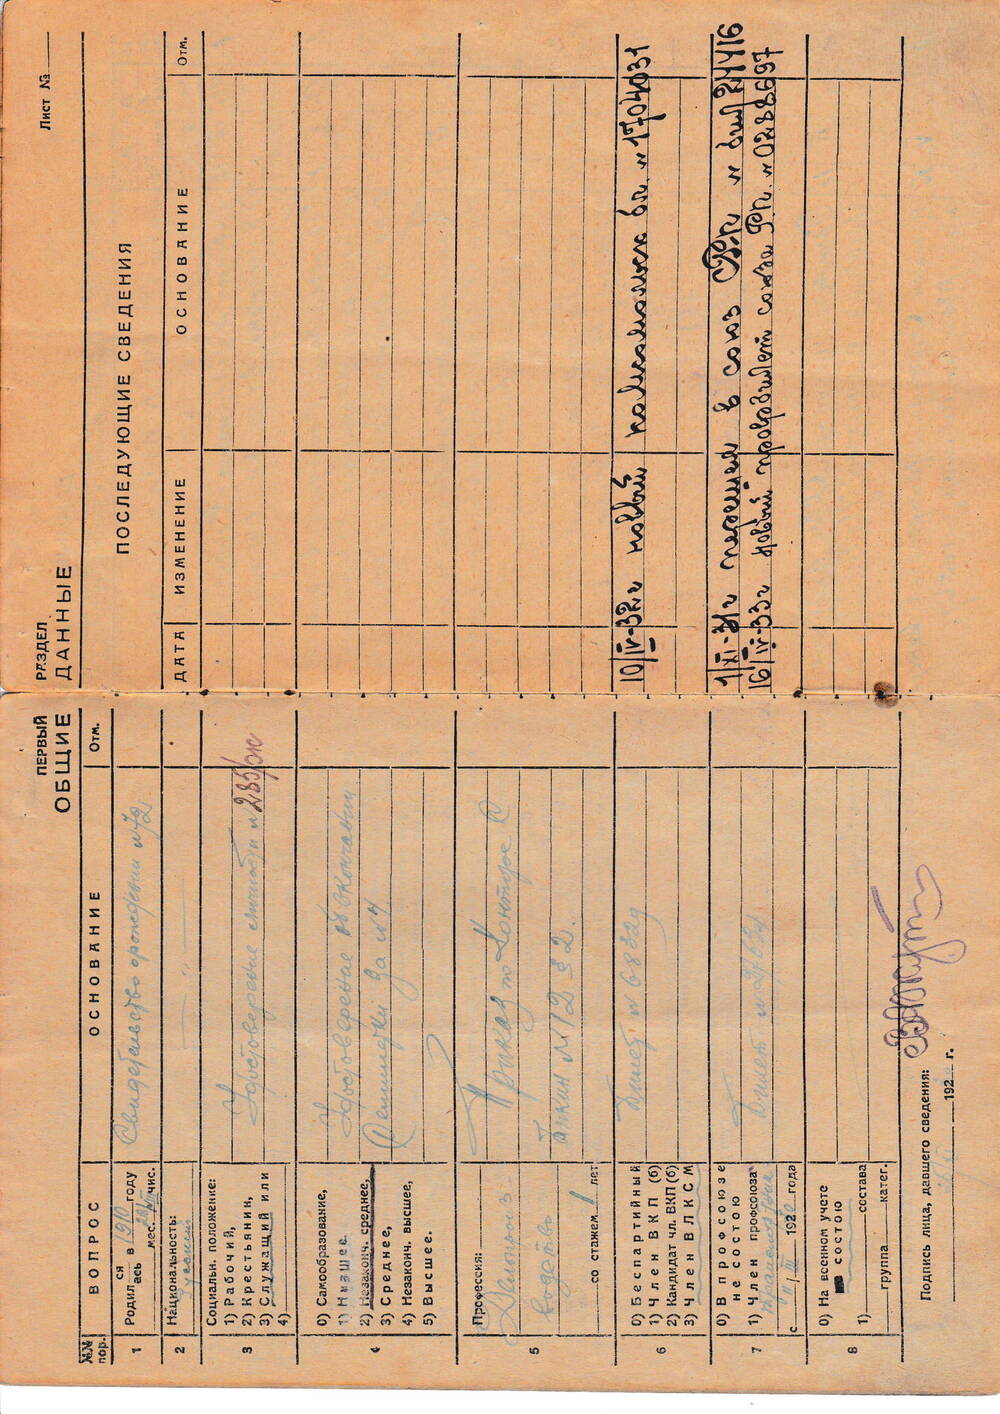 ПЕРВЫЙ РАЗДЕЛ Лист №
ОБЩИЕ ДАННЫЕ
№№ пор. ВОПРОС ОСНОВАНИЕ Отм.
1 Родил ся ась в 1910 году
мес. чис.
Свидетельство о рождении №72
2 Национальность:
Русский
3 Социальн. положение:
1) Рабочий,
2) Крестьянин,
3) Служащий или
4)
Удостоверение
4 0) Самообразование,
1) Низшее.
2) Незаконч. среднее,
3) Среднее,
4) Незаконч. высшее,
5) Высшее.
Удостоверение об окончании
Семилетки за №7
5 Профессия:
Делопроиз
водство
со стажем 1 лет
Приказ по Конторе
№12 § 2.
6 0) Беспартийный
1) Член ВКП (б)
2) Кандидат чл. ВКП(б)
3) Член ВЛКСМ
Билет №6832
7 0) В профсоюзе
не состою
1) Член профсоюза
с 192 года
Билет №
8 0) На военном учете
не состою
1) состава
группа катег.
Подпись лица, давшего сведения:
192 г.
ПОСЛЕДУЮЩИЕ СВЕДЕНИЯ
ДАТА ИЗМЕНЕНИЕ ОСНОВАНИЕ Отм.
10/IV-32г новый комсомольск бл. № 1704031
1/XI-31г перешел в союз РК № бил 24416
16/IV-33г новый профбилет союза РК. № 0288697